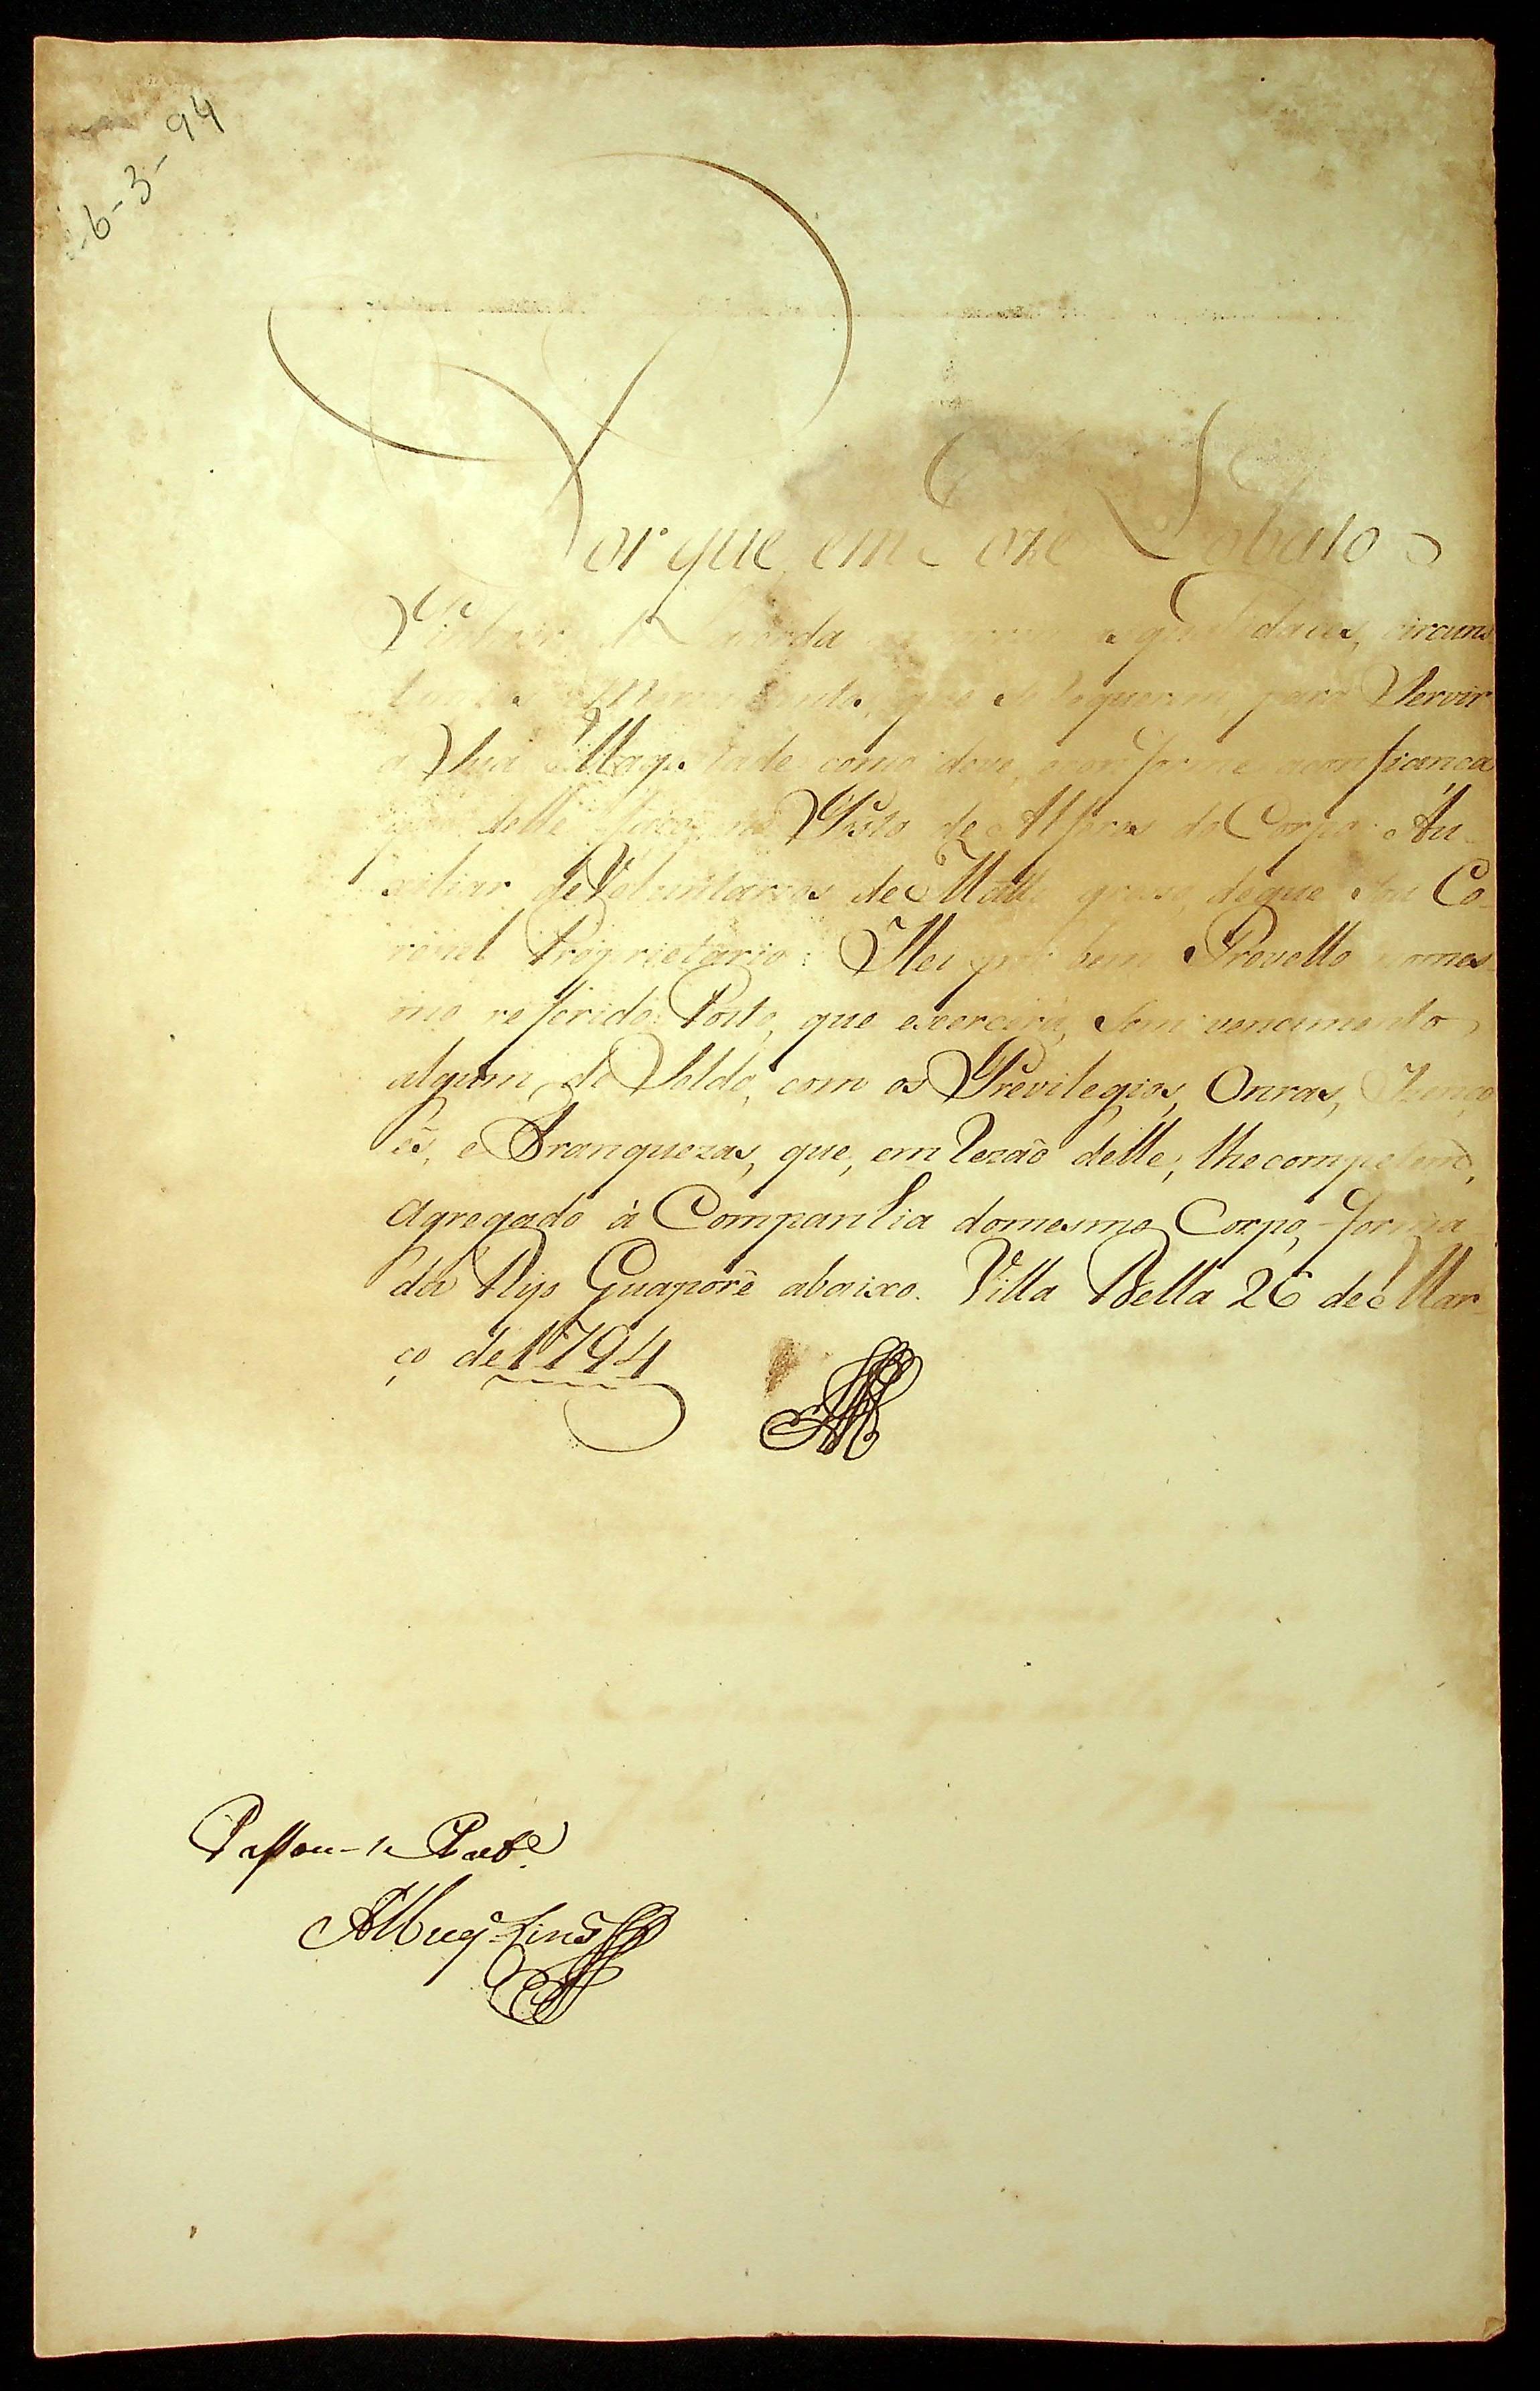 -6-3-94
Porque em Joze Lobato
Lacerda qualidades, circuns
que se requerem, para Servir
a Sua Magestade como deve, e conforme a confiança
delle faço, no Posto de Alferes do Corpo Au-
xiliar de Voluntarios de Matto groso, de que Sou Co-
ronel Proprietario: Hei por bem Provello no mes
mo referido Posto, que exercerá, Sem vencimento
algum de Soldo, com os Previlegios, Onras, Izenço
ẽs, e Franquezas, que, em Rezaõ delle, lhe competem,
agregado à Companhia do mesmo Corpo, forma
da Rijo Guaporê abaixo. Villa Bella 26 de Mar-
ço de 1794
Passou-se Pat.e
Albuq.e Lins